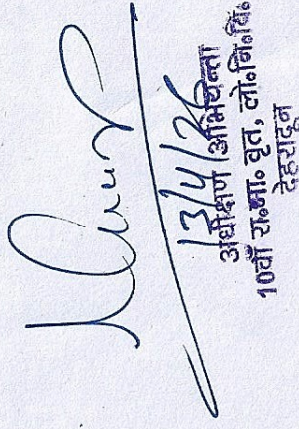 13/4/26
अधीक्षण अभियन्ता
10वाँ रा०मा० वृत, लो०नि०वि०
देहरादून